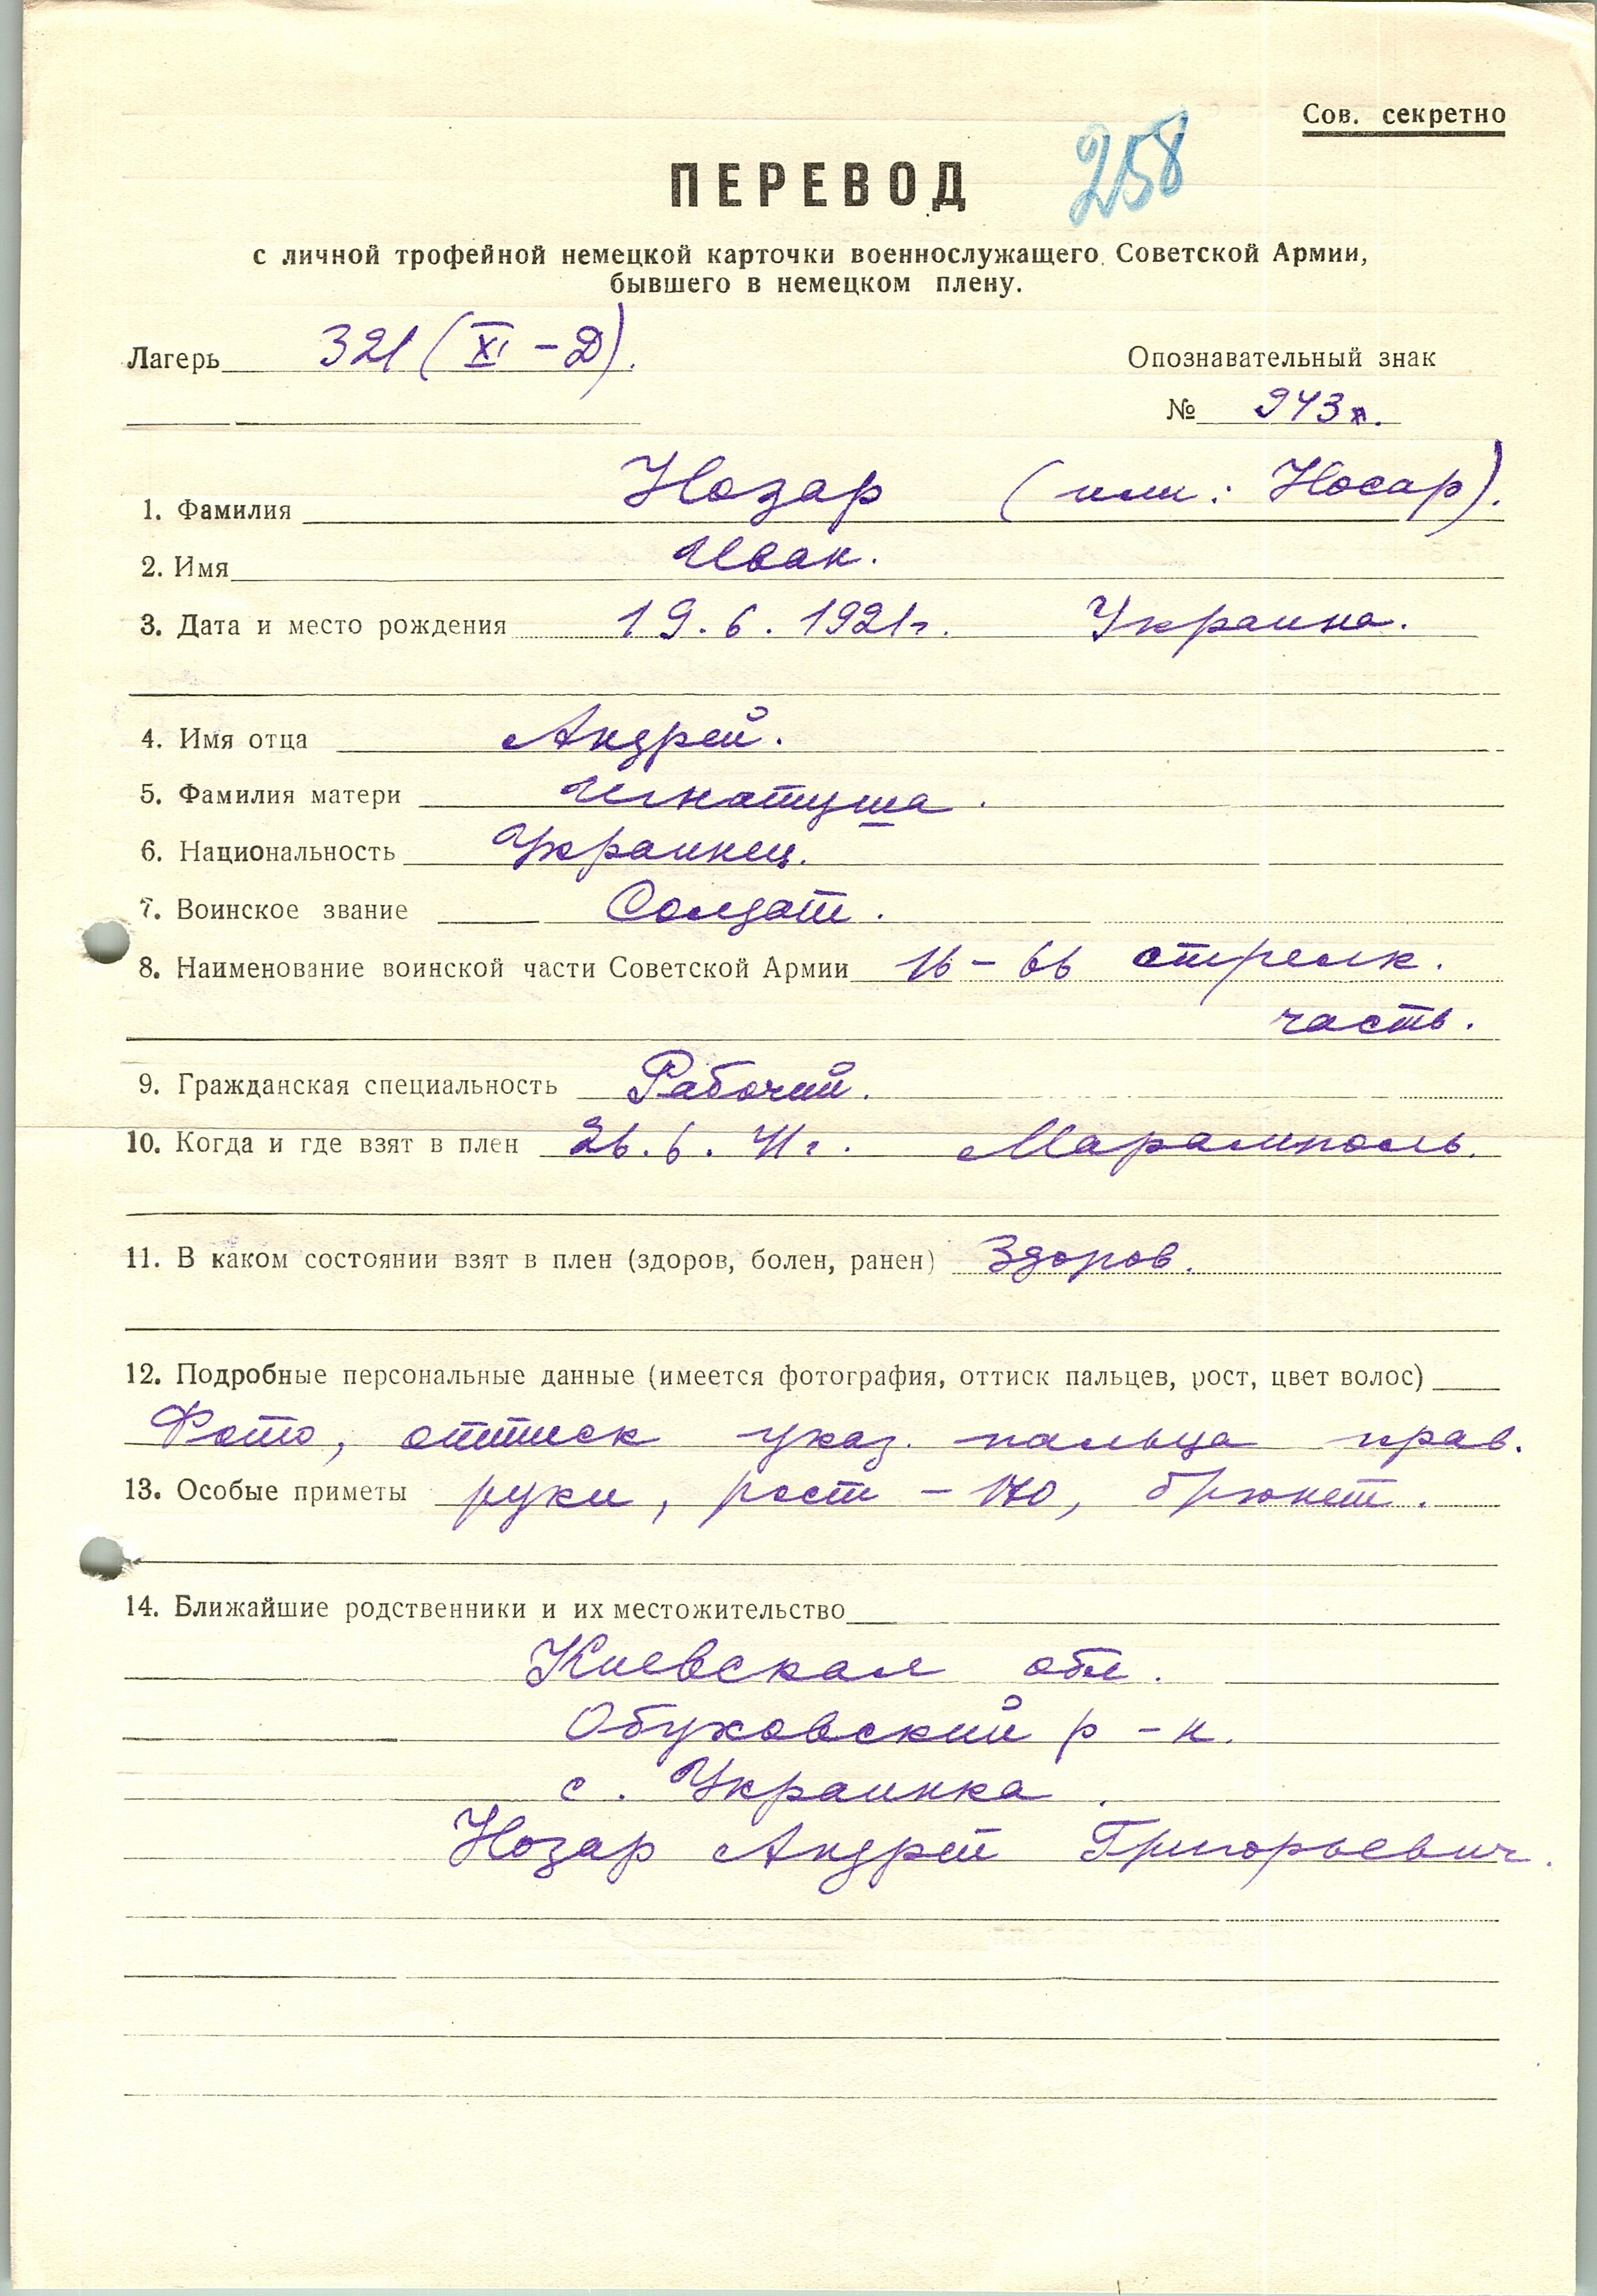 Сов. секретно
ПЕРЕВОД 258
с личной трофейной немецкой карточки военнослужащего Советской Армии,
бывшего в немецком плену.
Лагерь 321 (XI – Д). Опознавательный знак
№ 943
1. Фамилия Нозар (или: Носар).
2. Имя Иван.
3. Дата и место рождения 19.6.1921г. Украина.
4. Имя отца Андрей.
5. Фамилия матери Игнатуша.
6. Национальность Украинец.
7. Воинское звание Солдат.
8. Наименование воинской части Советской Армии 16 – 66 стрелк.
часть.
9. Гражданская специальность Рабочий.
10. Когда и где взят в плен 26.6.41г. Мариамполь.
11. В каком состоянии взят в плен (здоров, болен, ранен) Здоров.
12. Подробные персональные данные (имеется фотография, оттиск пальцев, рост, цвет волос)
Фото, оттиск указ. пальца прав.
13. Особые приметы руки, рост – 170, брюнет.
14. Ближайшие родственники и их местожительство
Киевская обл.
Обуховский р-н.
с. Украинка.
Нозар Андрей Григорьевич.